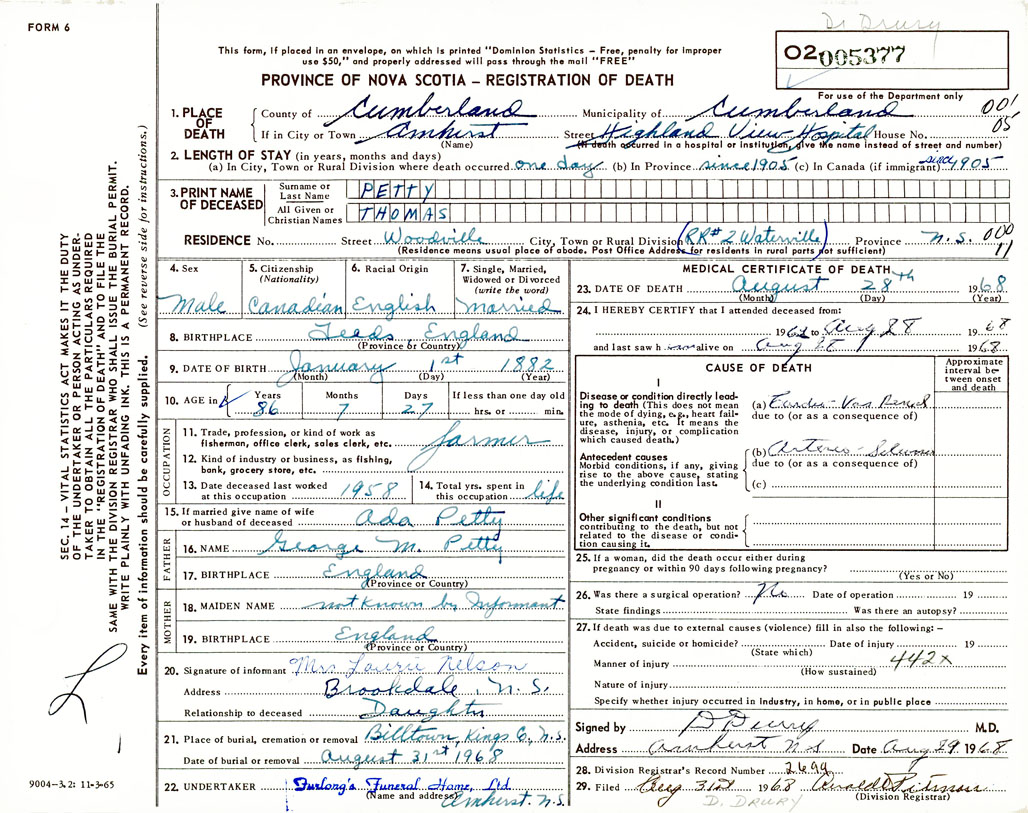 Dr Drury
FORM 6
This form, if placed in an envelope, on which is printed "Dominion Statistics — Free, penalty for improper
use $50," and properly addressed will pass through the mail "FREE"
PROVINCE OF NOVA SCOTIA — REGISTRATION OF DEATH
02 005377
For use of the Department only
1. PLACE OF DEATH
County of Cumberland Municipality of Cumberland 001
If in City or Town Amherst Street Highland View Hospital House No. 05
(Name) (If death occurred in a hospital or institution, give the name instead of street and number)
2. LENGTH OF STAY (in years, months and days)
(a) In City, Town or Rural Division where death occurred one day (b) In Province since 1905 (c) In Canada (if immigrant) since 1905
3. PRINT NAME OF DECEASED
Surname or Last Name PETTY
All Given or Christian Names THOMAS
RESIDENCE No. Street Woodville City, Town or Rural Division (RR#2 Waterville) Province N.S. 000
(Residence means usual place of abode. Post Office Address for residents in rural parts not sufficient) 11
4. Sex Male
5. Citizenship (Nationality) Canadian
6. Racial Origin English
7. Single, Married, Widowed or Divorced (write the word) Married
8. BIRTHPLACE Leeds, England
(Province or Country)
9. DATE OF BIRTH January 1st 1882
(Month) (Day) (Year)
10. AGE in Years 86 Months 7 Days 27 If less than one day old hrs. or min.
OCCUPATION
11. Trade, profession, or kind of work as
fisherman, office clerk, sales clerk, etc. farmer
12. Kind of industry or business, as fishing,
bank, grocery store, etc.
13. Date deceased last worked
at this occupation 1958
14. Total yrs. spent in
this occupation life
15. If married give name of wife
or husband of deceased Ada Petty
FATHER
16. NAME George M. Petty
17. BIRTHPLACE England
(Province or Country)
MOTHER
18. MAIDEN NAME not known by Informant
19. BIRTHPLACE England
(Province or Country)
20. Signature of informant Mrs Laurie Nelson
Address Brookdale, N.S.
Relationship to deceased Daughter
21. Place of burial, cremation or removal Billtown, Kings Co., N.S.
Date of burial or removal August 31st 1968
22. UNDERTAKER Furlong's Funeral Home, Ltd.
(Name and address) Amherst. N.S.
MEDICAL CERTIFICATE OF DEATH
23. DATE OF DEATH August 28th 1968
(Month) (Day) (Year)
24. I HEREBY CERTIFY that I attended deceased from:
19 to Aug 28 1968
and last saw h alive on Aug 28 1968
CAUSE OF DEATH
Approximate interval between onset and death
I
Disease or condition directly leading to death (This does not mean
the mode of dying, e.g., heart failure, asthenia, etc. It means the
disease, injury, or complication
which caused death.)
(a) Cardio-Vas Renal
due to (or as a consequence of)
Antecedent causes
Morbid conditions, if any, giving
rise to the above cause, stating
the underlying condition last.
(b) Arterio-
due to (or as a consequence of)
(c)
II
Other significant conditions
contributing to the death, but not
related to the disease or condition causing it.
25. If a woman, did the death occur either during
pregnancy or within 90 days following pregnancy?
(Yes or No)
26. Was there a surgical operation? No Date of operation 19
State findings Was there an autopsy?
27. If death was due to external causes (violence) fill in also the following: —
Accident, suicide or homicide? Date of injury 19
(State which)
Manner of injury 442x
(How sustained)
Nature of injury
Specify whether injury occurred in industry, in home, or in public place
Signed by D Drury M.D.
Address Amherst NS Date Aug 29 1968
28. Division Registrar's Record Number 2699
29. Filed Aug 31st 1968
(Division Registrar)
D. DRURY
SEC. 14 — VITAL STATISTICS ACT MAKES IT THE DUTY
OF THE UNDERTAKER OR PERSON ACTING AS UNDER-
TAKER TO OBTAIN ALL THE PARTICULARS REQUIRED
IN THE "REGISTRATION OF DEATH" AND TO FILE THE
SAME WITH THE DIVISION REGISTRAR WHO SHALL ISSUE THE BURIAL PERMIT.
WRITE PLAINLY WITH UNFADING INK. THIS IS A PERMANENT RECORD.
Every item of information should be carefully supplied. (See reverse side for instructions.)
9004—3.2: 11-3-65